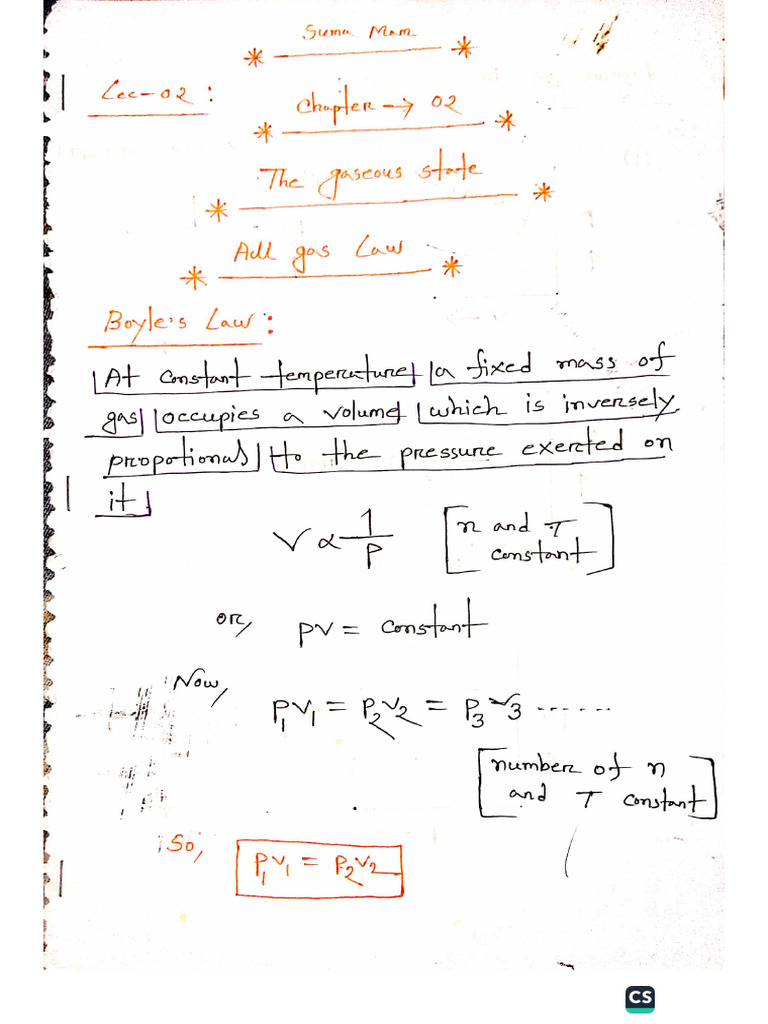 Suma Mam
Lec-02:
Chapter → 02
The gaseous state
All gas Law
Boyle's Law:
At constant temperature a fixed mass of
gas occupies a volume which is inversely
propotional to the pressure exerted on
it
V ∝ 1/P [n and T constant]
or, PV = constant
Now,
P₁V₁ = P₂V₂ = P₃V₃ ......
[number of n
and T constant]
So, P₁V₁ = P₂V₂
CS